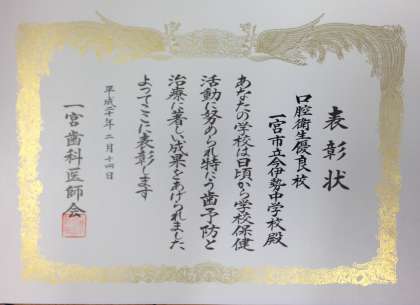 表彰状
口腔衛生優良校
一宮市立今伊勢中学校殿
あなたの学校は日頃から学校保健
活動に努められ特にう歯予防と
治療に著しい成果をあげられました
よってここに表彰します
平成二十年二月十四日
一宮歯科医師会